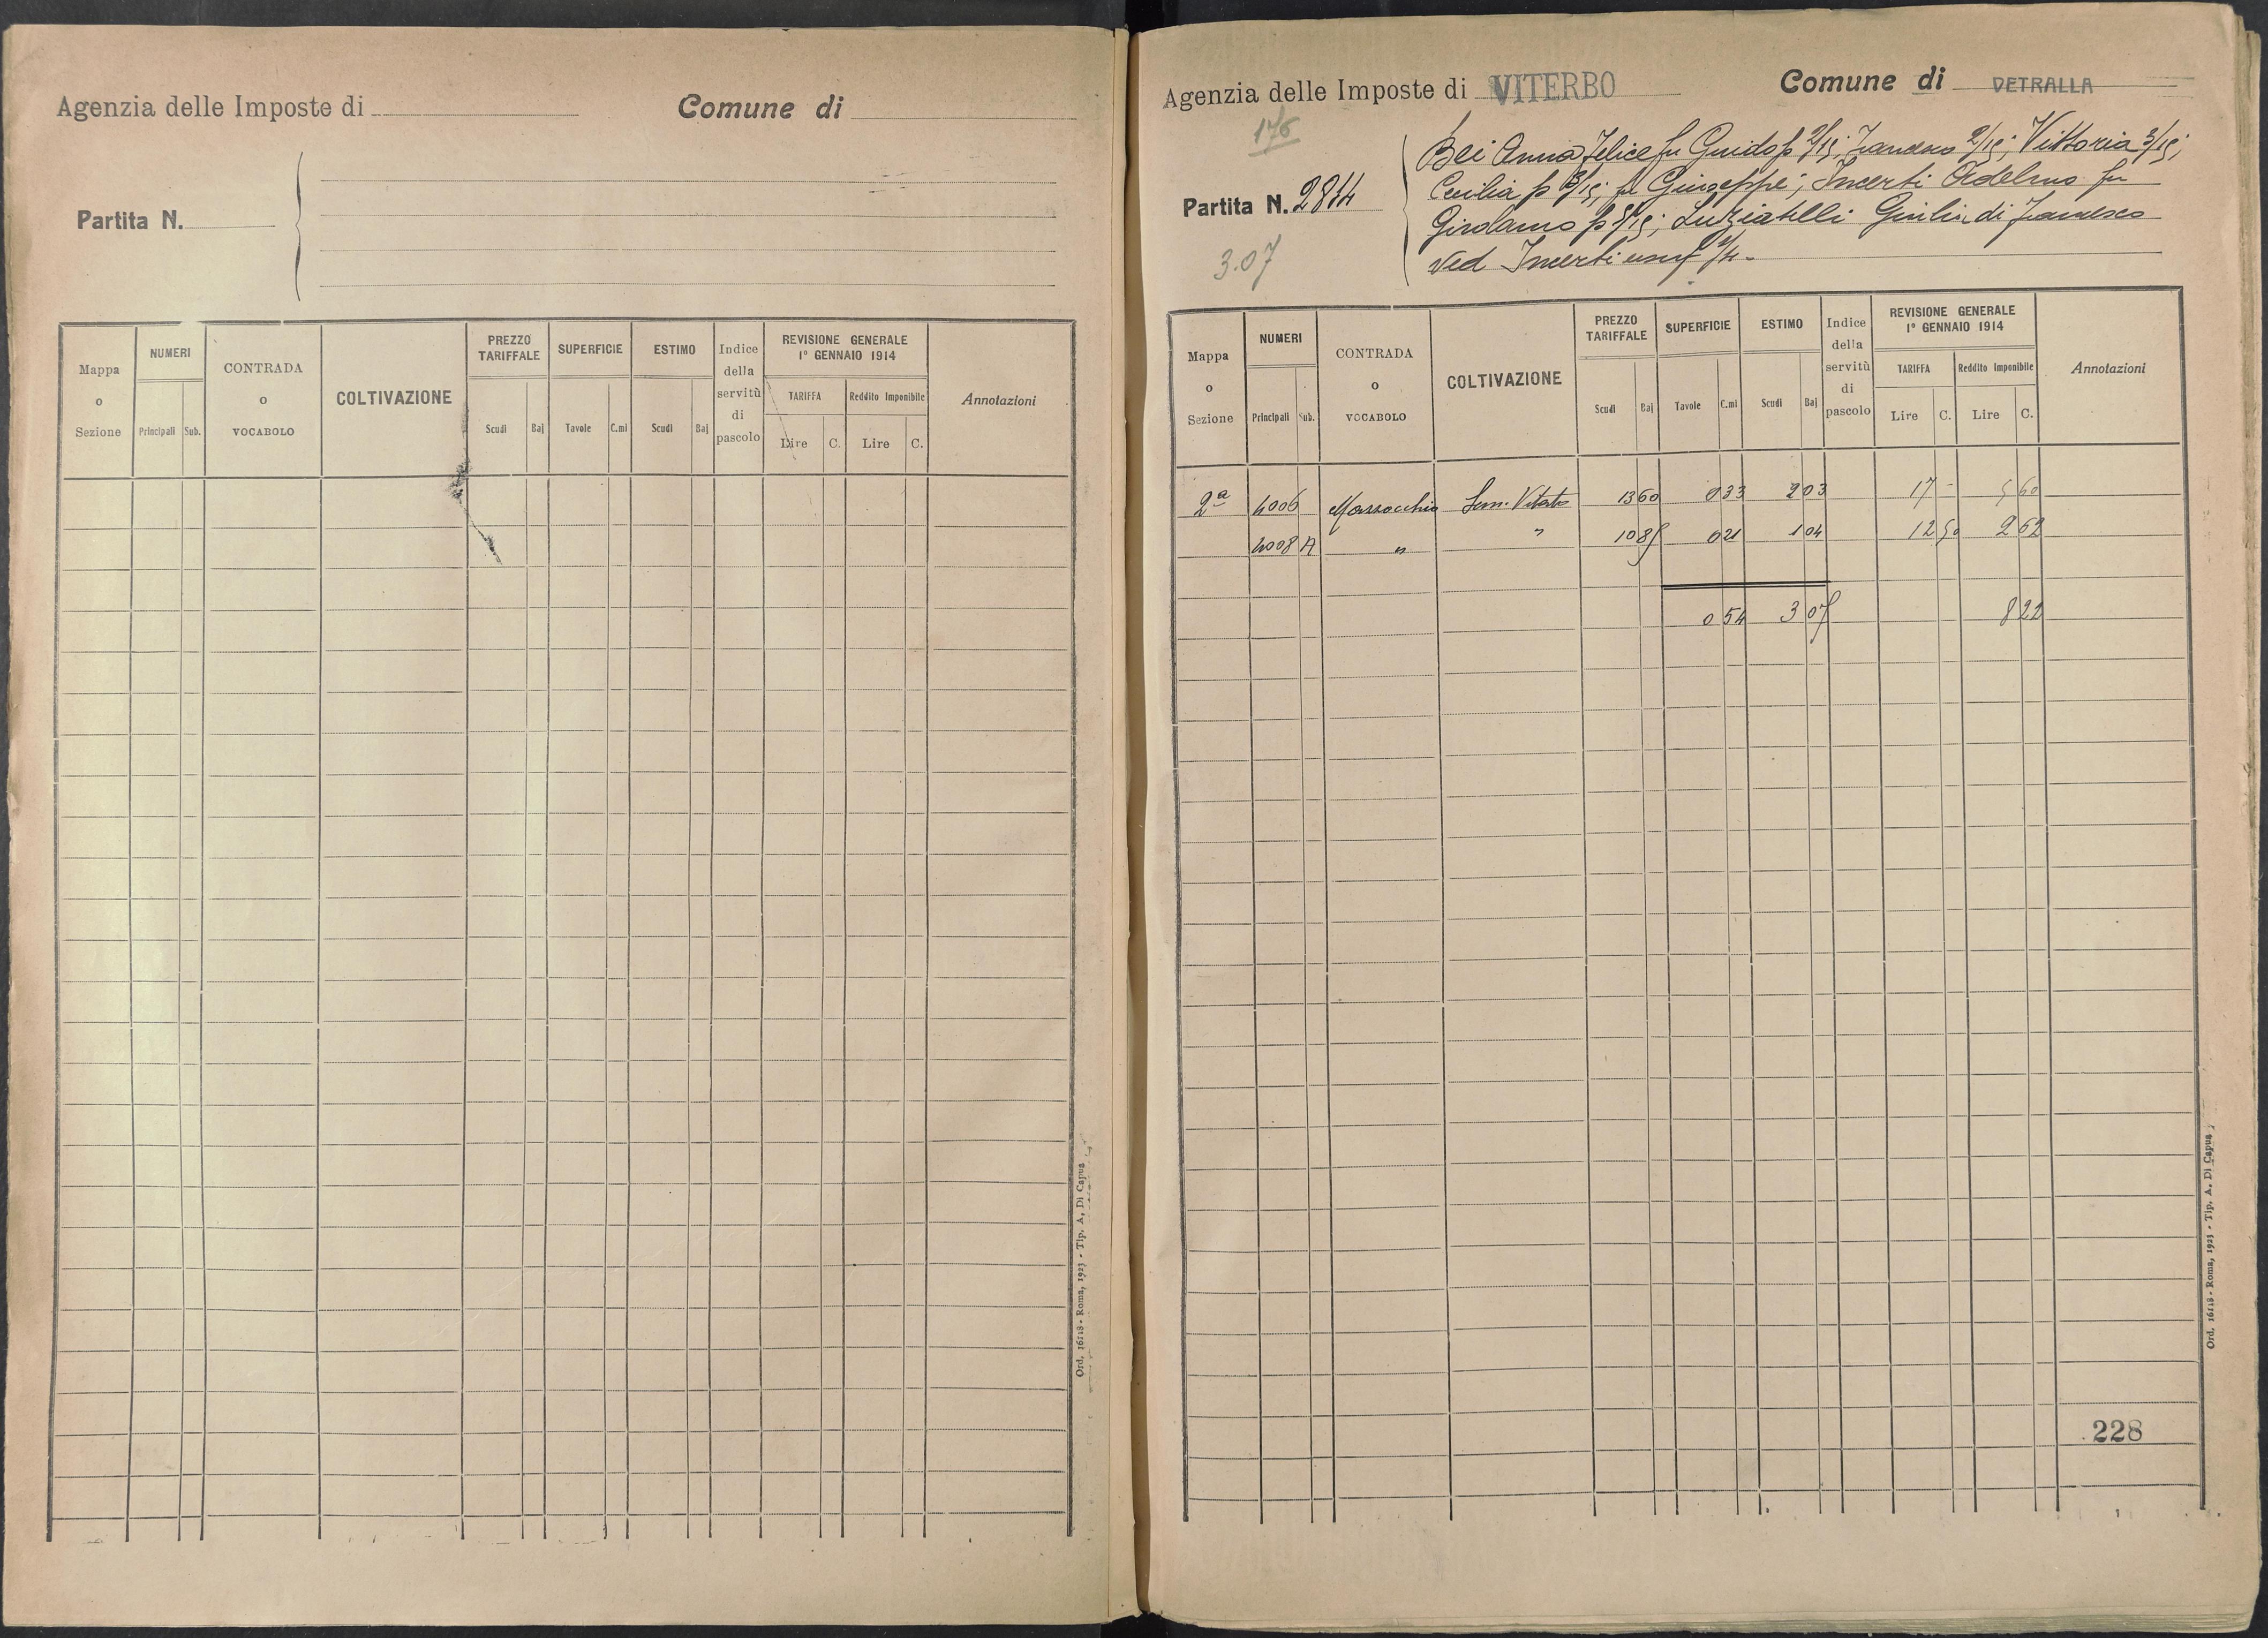 Agenzia delle Imposte di
Comune di
Partita N.
Mappa o Sezione
NUMERI
Principali
Sub.
CONTRADA o VOCABOLO
COLTIVAZIONE
PREZZO TARIFFALE
Scudi
Baj
SUPERFICIE
Tavole
C.mi
ESTIMO
Scudi
Baj
Indice della servitù di pascolo
REVISIONE GENERALE
1° GENNAIO 1914
TARIFFA
Reddito Imponibile
Lire
C.
Lire
C.
Annotazioni
Ord. 16118 - Roma, 1923 - Tip. A. Di Capua
Agenzia delle Imposte di VITERBO
Comune di VETRALLA
176
Partita N. 2814
3.07
Bei Anna Felice fu Guido p 2/15; Francesco 2/15; Vittoria 3/15;
Cecilia p 3/15; fu Giuseppe; Incerti Ardelmo fu
Girolamo p 5/15; Luziatelli Giulia di Francesco
ved Incerti usuf 1/4.
Mappa o Sezione
NUMERI
Principali
Sub.
CONTRADA o VOCABOLO
COLTIVAZIONE
PREZZO TARIFFALE
Scudi
Baj
SUPERFICIE
Tavole
C.mi
ESTIMO
Scudi
Baj
Indice della servitù di pascolo
REVISIONE GENERALE
1° GENNAIO 1914
TARIFFA
Reddito Imponibile
Lire
C.
Lire
C.
Annotazioni
2ª 4006 Mazzocchio Sem. Vitato 13 60 0 33 2 03 17 - 5 60
4008 A " " 10 85 0 21 1 04 12 50 2 62
0 54 3 07 8 22
228
Ord. 16118 - Roma, 1923 - Tip. A. Di Capua